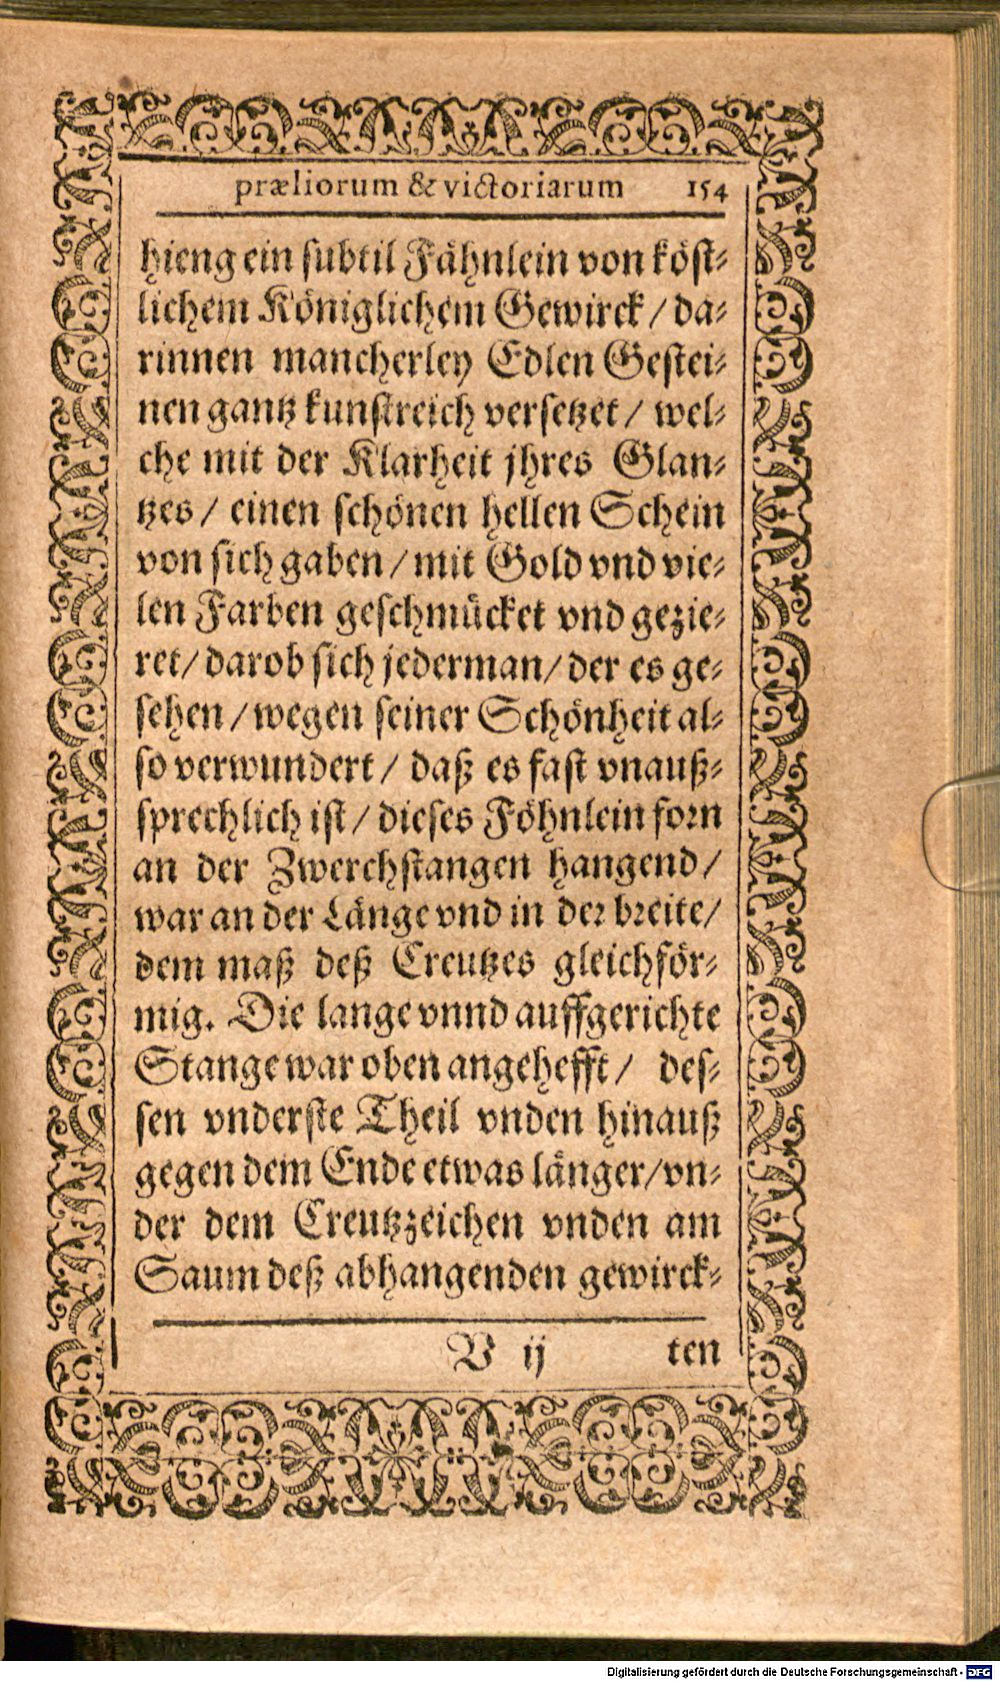 præliorum & victoriarum 154
hieng ein subtil Fähnlein von köst-
lichem Königlichem Gewirck / da-
rinnen mancherley Edlen Gestei-
nen gantz kunstreich versetzet / wel-
che mit der Klarheit jhres Glan-
tzes / einen schönen hellen Schein
von sich gaben / mit Gold vnd vie-
len Farben geschmücket vnd gezie-
ret / darob sich jederman / der es ge-
sehen / wegen seiner Schönheit al-
so verwundert / daß es fast vnauß-
sprechlich ist / dieses Föhnlein forn
an der Zwerchstangen hangend /
war an der Länge vnd in der breite /
dem maß deß Creutzes gleichför-
mig. Die lange vnnd auffgerichte
Stange war oben angehefft / des-
sen vnderste Theil vnden hinauß
gegen dem Ende etwas länger / vn-
der dem Creutzzeichen vnden am
Saum deß abhangenden gewirck-
V ij ten
Digitalisierung gefördert durch die Deutsche Forschungsgemeinschaft - DFG